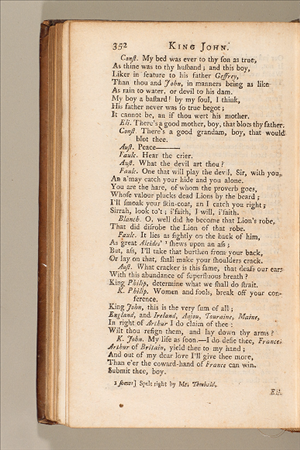 352 KING JOHN.
Const. My bed was ever to thy son as true,
As thine was to thy husband; and this boy,
Liker in feature to his father Geffrey,
Than thou and John, in manners being as like
As rain to water, or devil to his dam.
My boy a bastard! by my soul, I think,
His father never was so true begot;
It cannot be, an if thou wert his mother.
Eli. There's a good mother, boy, that blots thy father.
Const. There's a good grandam, boy, that would
blot thee.
Aust. Peace———
Faulc. Hear the crier.
Aust. What the devil art thou?
Faulc. One that will play the devil, Sir, with you,
An a'may catch your hide and you alone.
You are the hare, of whom the proverb goes,
Whose valour plucks dead Lions by the beard;
I'll smoak your skin-coat, an I catch you right;
Sirrah, look to't; i'faith, I will, i'faith.
Blanch. O, well did he become that Lion's robe,
That did disrobe the Lion of that robe.
Faulc. It lies as sightly on the back of him,
As great Alcides' ² shews upon an ass;
But, ass, I'll take that burthen from your back,
Or lay on that, shall make your shoulders crack.
Aust. What cracker is this same, that deafs our ears
With this abundance of superfluous breath?
King Philip, determine what we shall do strait.
K. Philip. Women and fools, break off your con-
ference.
King John, this is the very sum of all;
England, and Ireland, Anjou, Touraine, Maine,
In right of Arthur I do claim of thee:
Wilt thou resign them, and lay down thy arms?
K. John. My life as soon.—I do defie thee, France.
Arthur of Britain, yield thee to my hand;
And out of my dear love I'll give thee more,
Than e'er the coward-hand of France can win.
Submit thee, boy.
2 shews] Spelt right by Mr. Theobald.
Eli.